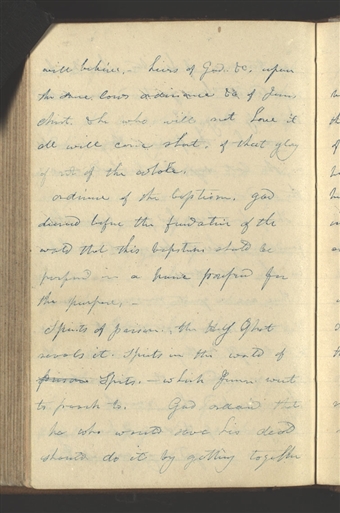 will believe,- heirs of God. &c. upon
the same laws ordinance &c of Jesus
christ. & he who will not have it
all will come short. of that glory
of of the whole.
ordinance of the baptism. God
decreed before the foundation of the
world that this baptism should be
performed in a house prepared for
the purpose,-
Spirits of prison, the Holy Ghost
reveals it. Spirits in the world of
prison Spirits.- which Jesus went
to preach to. God ordained that
he who would save his dead
should do it by getting together